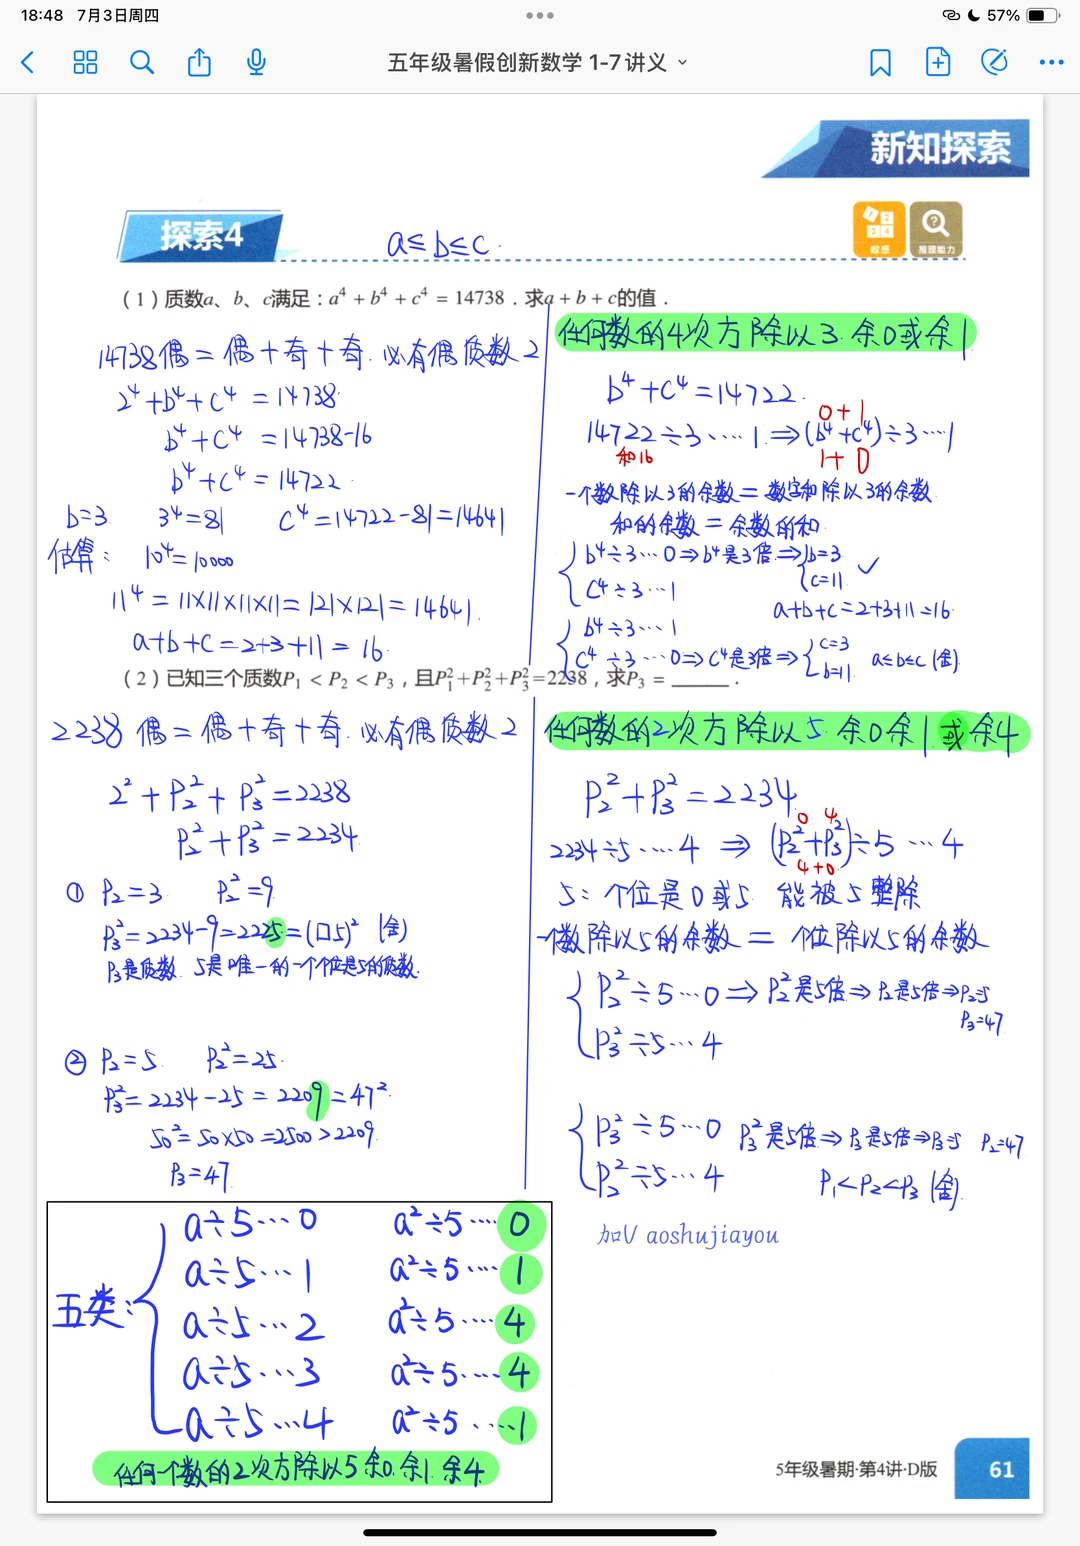 18:48 7月3日周四
57%
五年级暑假创新数学 1-7 讲义
新知探索
探索4
a≤b≤c.
数感
推理能力
（1）质数a、b、c满足：a⁴ + b⁴ + c⁴ = 14738．求a + b + c的值．
14738偶=偶+奇+奇.必有偶质数2
2⁴+b⁴+c⁴=14738.
b⁴+c⁴=14738-16
b⁴+c⁴=14722.
b=3. 3⁴=81 c⁴=14722-81=14641
估算: 10⁴=10000
11⁴=11×11×11×11=121×121=14641.
a+b+c=2+3+11=16.
任何数的4次方除以3.余0或余1
b⁴+c⁴=14722.
0+1
14722÷3····1.⇒(b⁴+c⁴)÷3···1
和16
1+0
一个数除以3的余数=数字和除以3的余数
和的余数=余数的和.
b⁴÷3···0⇒b⁴是3倍⇒b=3
c⁴÷3···1
c=11 ✓
a+b+c=2+3+11=16.
b⁴÷3···1
c⁴÷3···0⇒c⁴是3倍⇒c=3
b=11. a≤b≤c (舍)
（2）已知三个质数P₁ < P₂ < P₃，且P₁²+P₂²+P₃²=2238，求P₃ = ______．
2238偶=偶+奇+奇.必有偶质数2
2²+P₂²+P₃²=2238
P₂²+P₃²=2234.
① P₂=3. P₂²=9.
P₃²=2234-9=2225=(口5)² (舍)
P₃是质数. 5是唯一的一个个位是5的质数.
② P₂=5. P₂²=25.
P₃²=2234-25=2209=47².
50²=50×50=2500>2209.
P₃=47.
任何数的2次方除以5.余0余1.或余4
P₂²+P₃²=2234.
0 4
2234÷5····4 ⇒ (P₂²+P₃²)÷5···4
4+0
5:个位是0或5.能被5整除
一个数除以5的余数=个位除以5的余数
P₂²÷5···0⇒P₂²是5倍⇒P₂是5倍⇒P₂=5
P₃=47
P₃²÷5···4
P₃²÷5···0 P₃²是5倍⇒P₃是5倍⇒P₃=5 P₂=47
P₂²÷5···4 P₁<P₂<P₃ (舍).
加V aoshujiayou
五类:
a÷5···0 a²÷5····0
a÷5···1 a²÷5····1
a÷5···2 a²÷5····4
a÷5···3 a²÷5····4
a÷5···4 a²÷5····1
任何一个数的2次方除以5余0.余1.余4.
5年级暑期·第4讲·D版
61